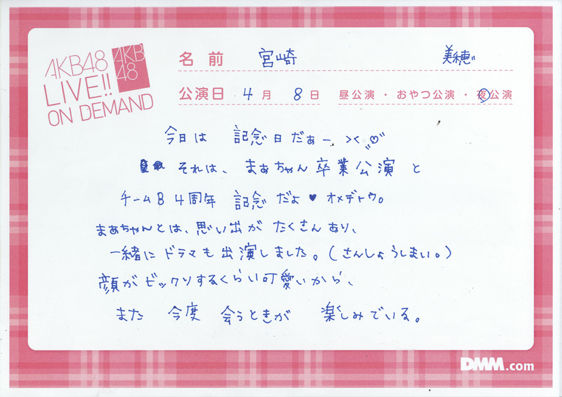 AKB48
LIVE!!
ON DEMAND
AKB
48
名前 宮崎 美穂
公演日 4月 8日 昼公演・おやつ公演・夜公演
今日は 記念日だぁー、><
それは、まぁちゃん卒業公演と
チームB 4周年 記念だよ♥オメデトウ。
まぁちゃんとは、思い出がたくさんあり、
一緒にドラマも出演しました。(さんしょうしまい。)
顔がビックリするくらい可愛いから、
また 今度 会うときが 楽しみでいる。
DMM.com